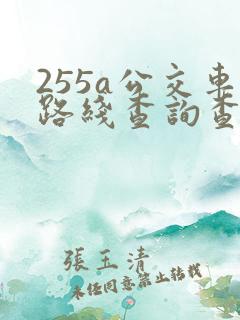 255a公交車
路綫查詢查
張玉清
未经同意禁止转载